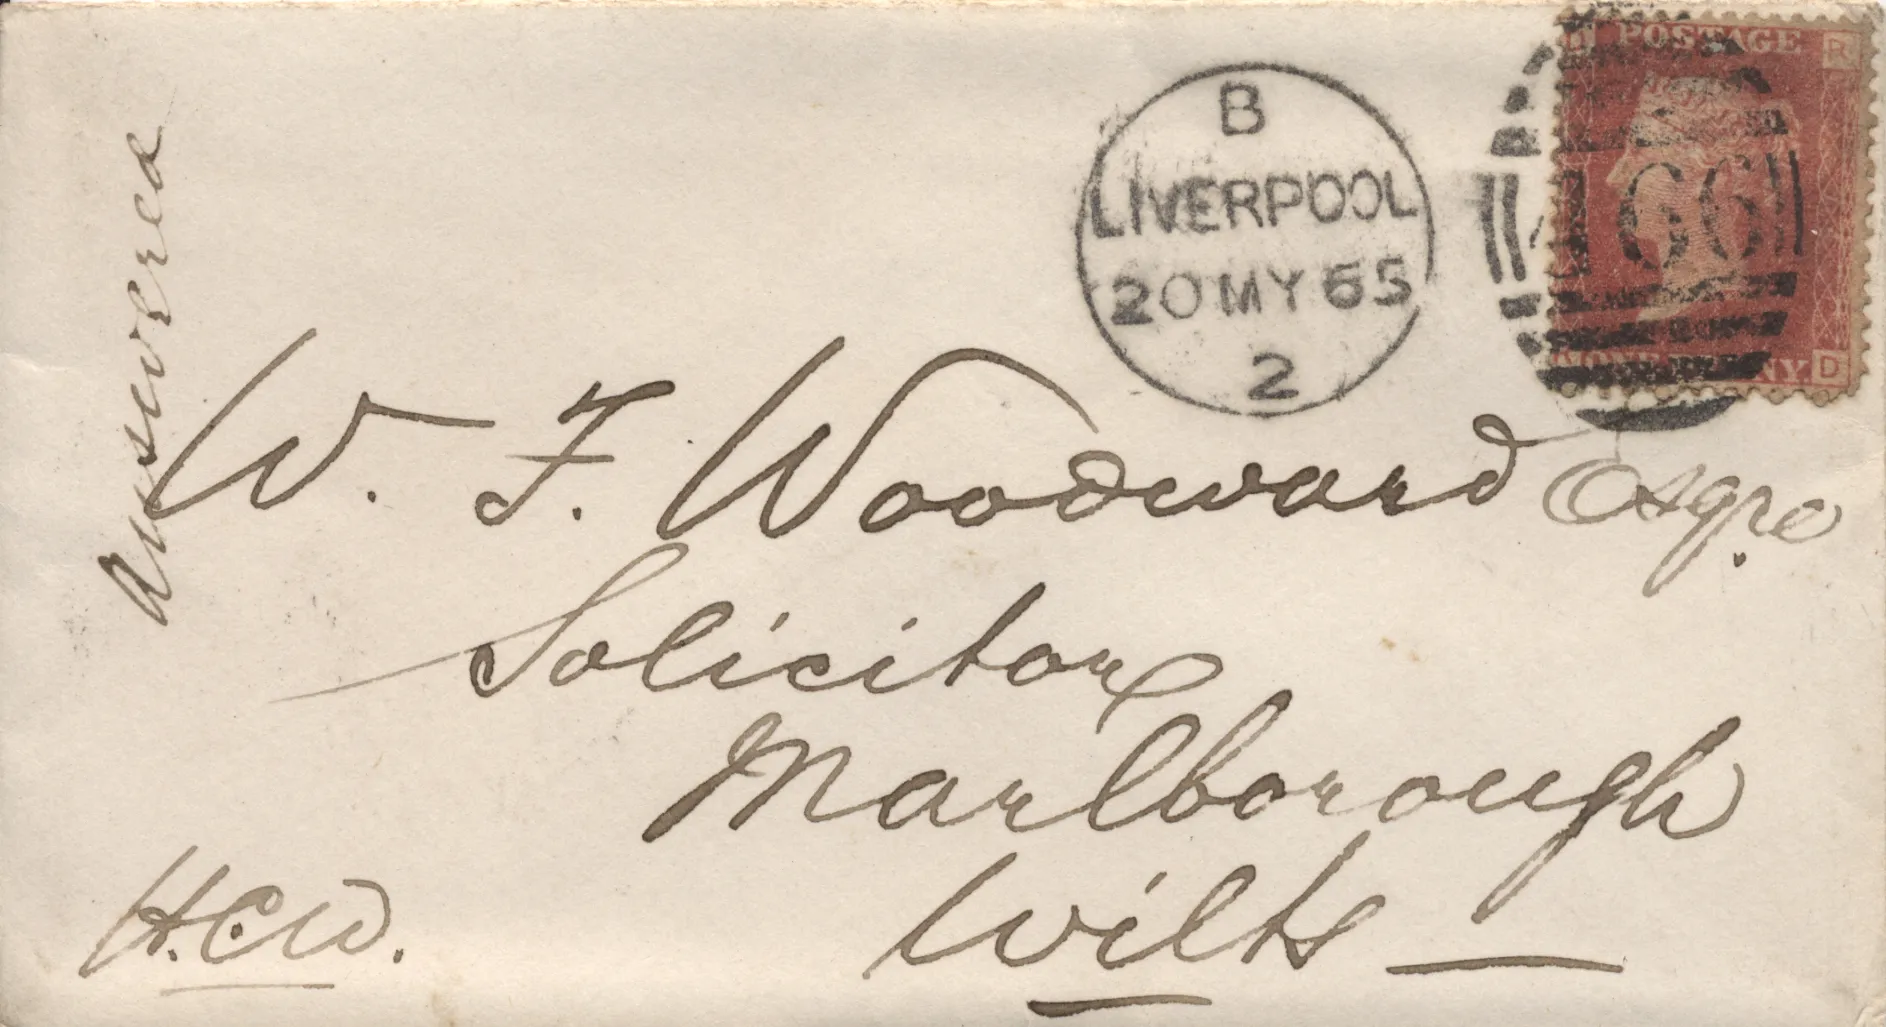 Answered
W. F. Woodward Esqre.
Solicitor
Marlborough
Wilts
H.C.W.
B
LIVERPOOL
20 MY 65
2
POSTAGE R
466
D